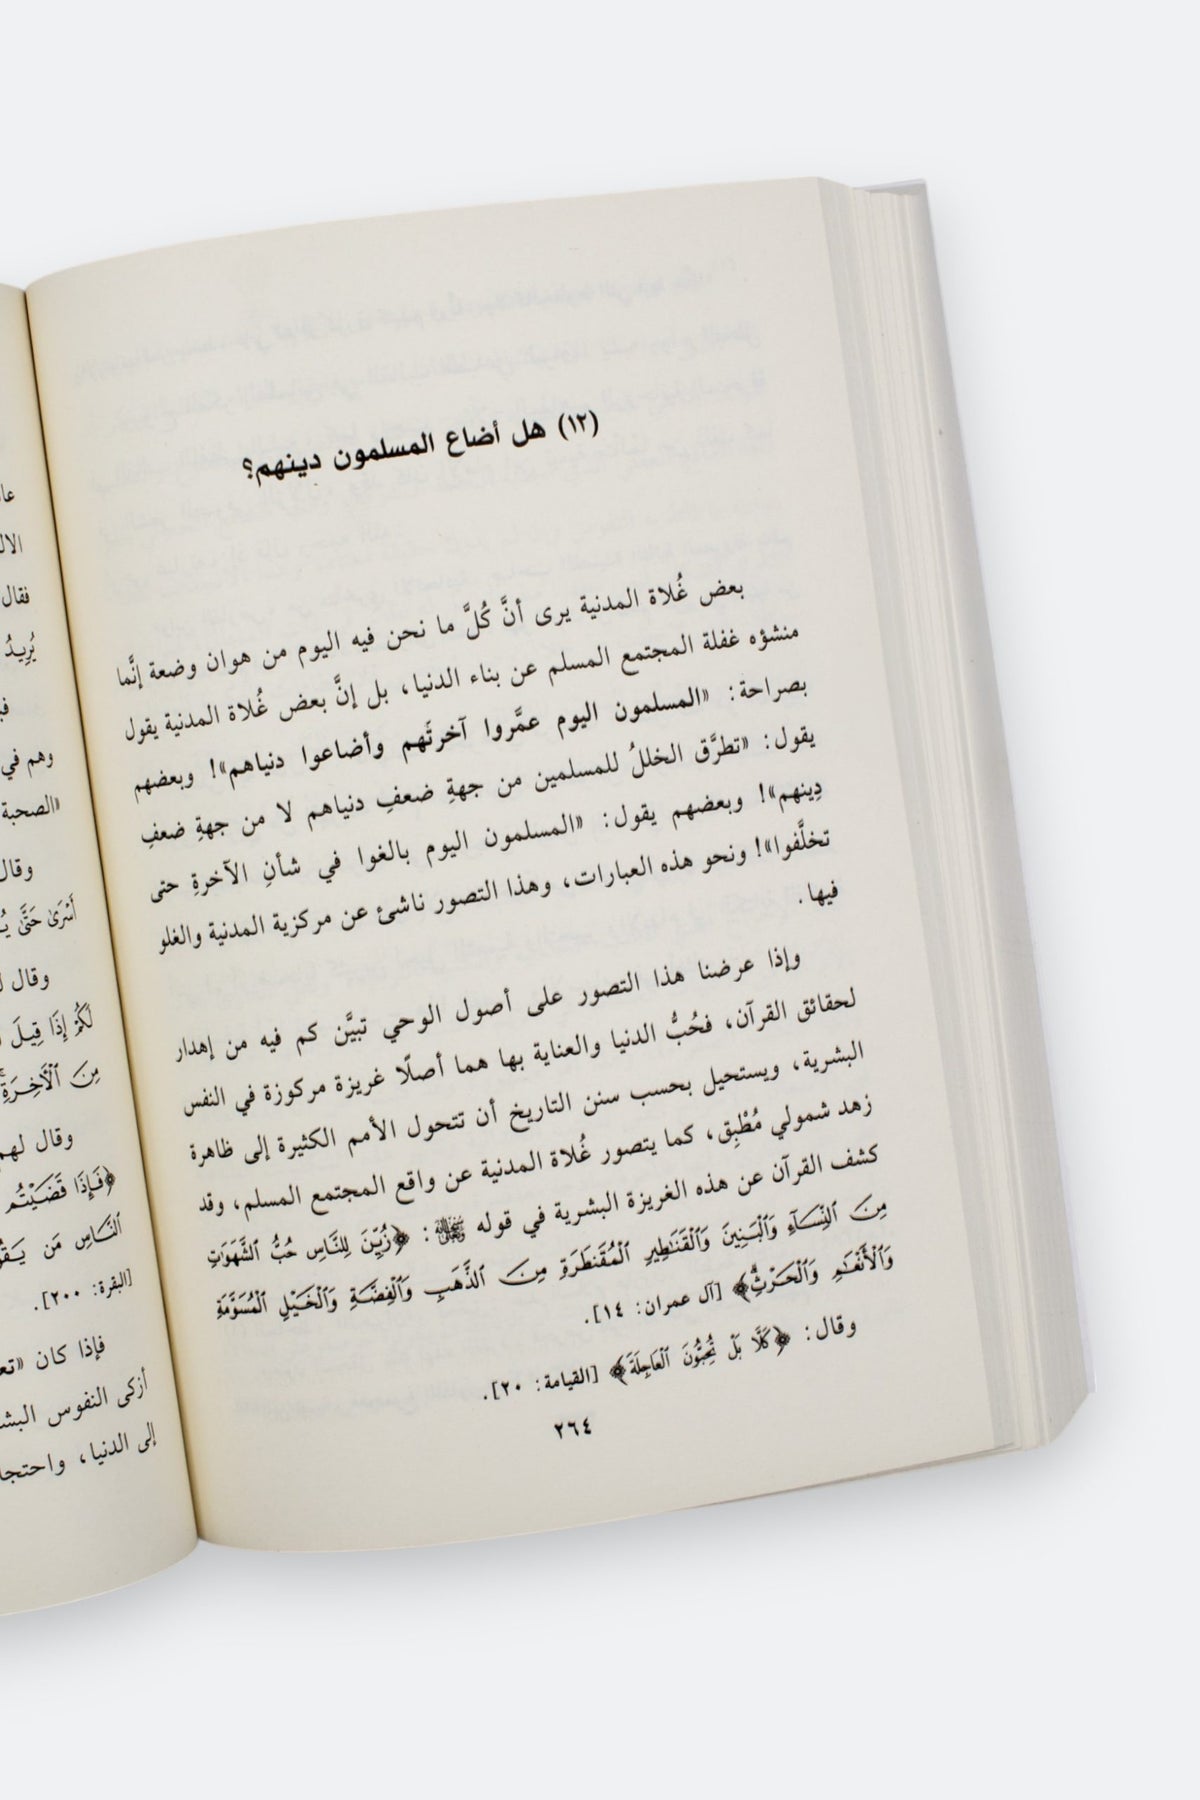 (١٢) هل أضاع المسلمون دينهم؟
بعض غُلاة المدنية يرى أنَّ كُلَّ ما نحن فيه اليوم من هوان وضعة إنَّما
منشؤه غفلة المجتمع المسلم عن بناء الدنيا، بل إنَّ بعض غُلاة المدنية يقول
بصراحة: «المسلمون اليوم عمَّروا آخرتَهم وأضاعوا دنياهم»! وبعضهم
يقول: «تطرَّق الخللُ للمسلمين من جهةِ ضعفِ دنياهم لا من جهةِ ضعفِ
دِينهم»! وبعضهم يقول: «المسلمون اليوم بالغوا في شأنِ الآخرةِ حتى
تخلَّفوا»! ونحو هذه العبارات، وهذا التصور ناشئ عن مركزية المدنية والغلو
فيها.
وإذا عرضنا هذا التصور على أصول الوحي تبيَّن كم فيه من إهدار
لحقائق القرآن، فحُبُّ الدنيا والعناية بها هما أصلًا غريزة مركوزة في النفس
البشرية، ويستحيل بحسب سنن التاريخ أن تتحول الأمم الكثيرة إلى ظاهرة
زهد شمولي مُطْبِق، كما يتصور غُلاة المدنية عن واقع المجتمع المسلم، وقد
كشف القرآن عن هذه الغريزة البشرية في قوله : ﴿زُيِّنَ لِلنَّاسِ حُبُّ ٱلشَّهَوَٰتِ
مِنَ ٱلنِّسَآءِ وَٱلْبَنِينَ وَٱلْقَنَٰطِيرِ ٱلْمُقَنطَرَةِ مِنَ ٱلذَّهَبِ وَٱلْفِضَّةِ وَٱلْخَيْلِ ٱلْمُسَوَّمَةِ
وَٱلْأَنْعَٰمِ وَٱلْحَرْثِ﴾ [آل عمران: ١٤].
وقال: ﴿كَلَّا بَلْ تُحِبُّونَ ٱلْعَاجِلَةَ﴾ [القيامة: ٢٠].
٢٦٤
فقال
يُرِيدُ
وهم في
«الصحبة
وقال
أَسْرَىٰ حَتَّىٰ
وقال
لَكُمْ إِذَا قِيلَ
مِنَ ٱلْأَخِرَةِ
وقال لهم
﴿فَإِذَا قَضَيْتُم
ٱلنَّاسِ مَن
[البقرة: ٢٠٠].
فإذا كان
أزكى النفوس
إلى الدنيا،